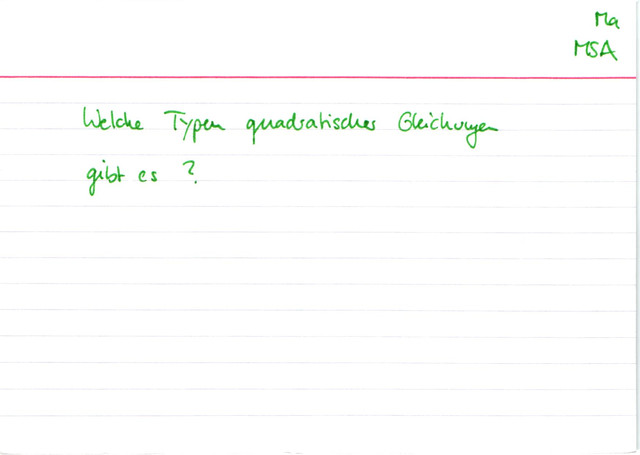 Ma
MSA
Welche Typen quadratischer Gleichungen
gibt es ?